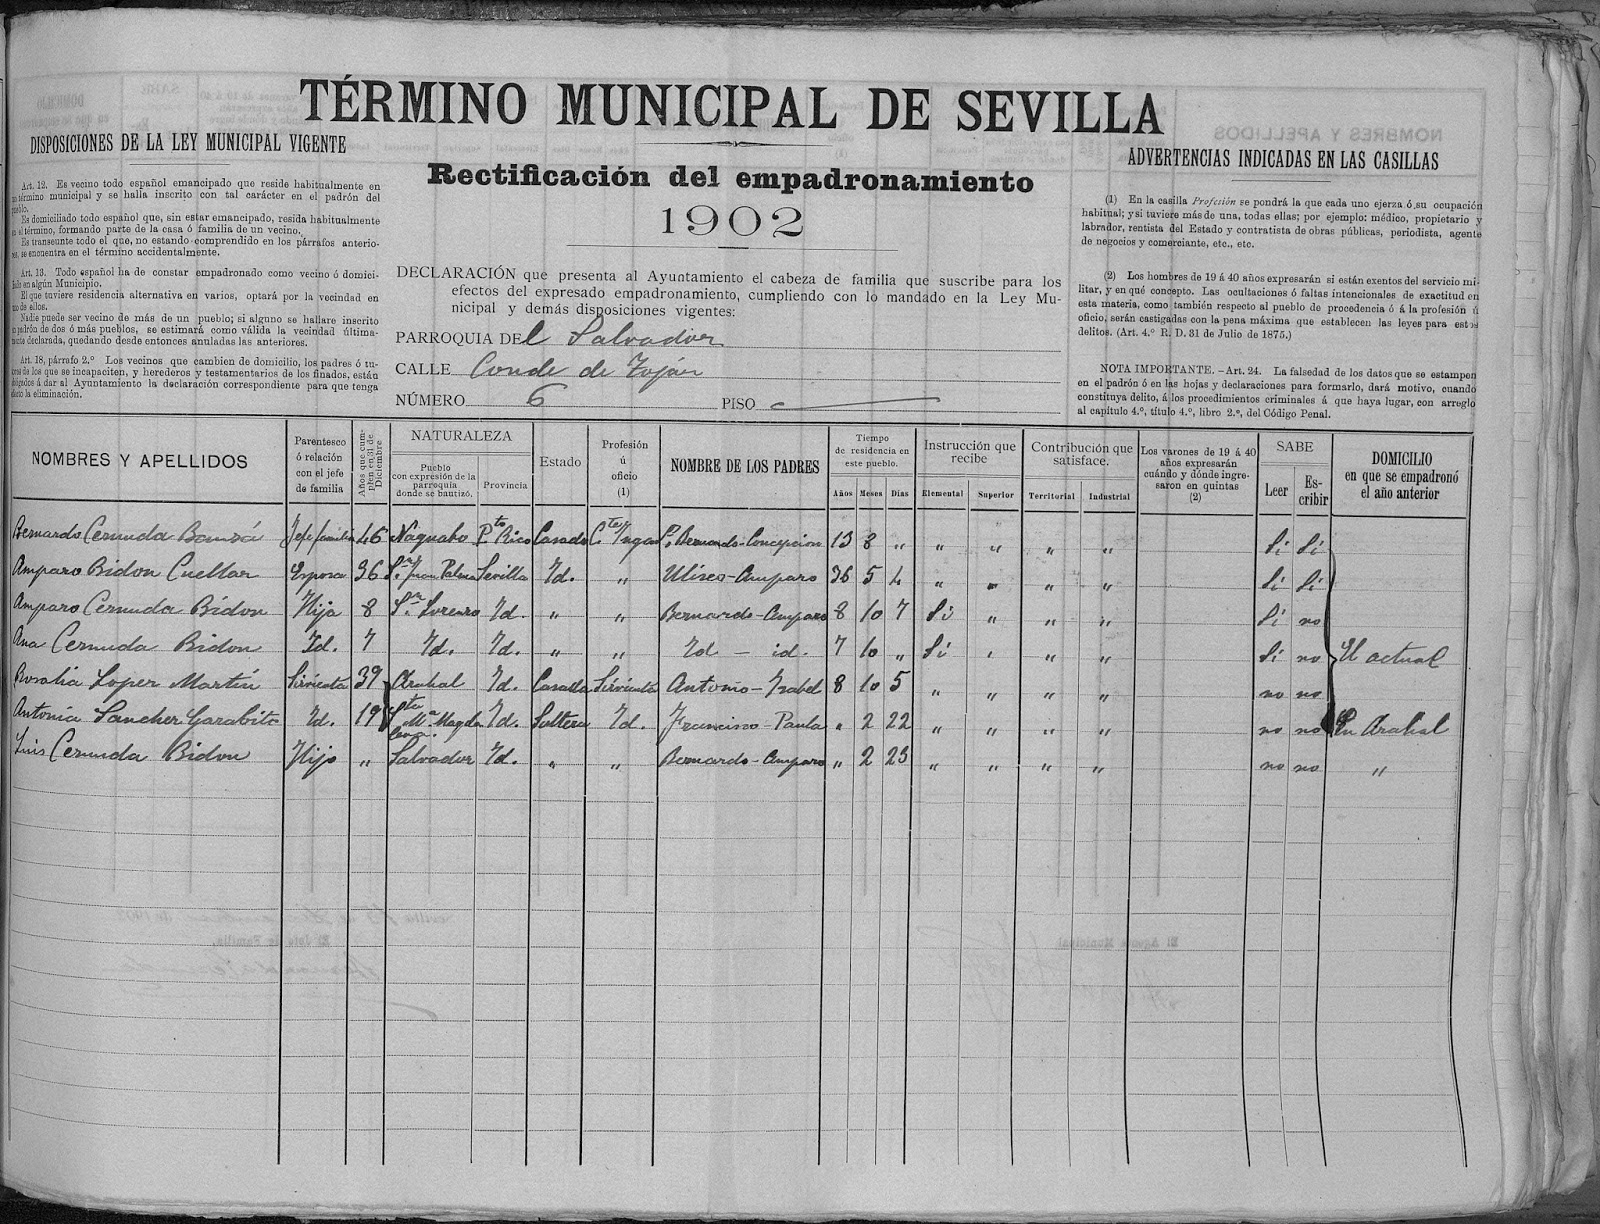 TÉRMINO MUNICIPAL DE SEVILLA
Rectificación del empadronamiento
1902
DISPOSICIONES DE LA LEY MUNICIPAL VIGENTE
Art. 12. Es vecino todo español emancipado que reside habitualmente en
término municipal y se halla inscrito con tal carácter en el padrón del
pueblo.
Es domiciliado todo español que, sin estar emancipado, resida habitualmente
en el término, formando parte de la casa ó familia de un vecino.
Es transeunte todo el que, no estando comprendido en los párrafos anterio-
res, se encuentra en el término accidentalmente.
Art. 13. Todo español ha de constar empadronado como vecino ó domici-
liado en algún Municipio.
El que tuviere residencia alternativa en varios, optará por la vecindad en
uno de ellos.
Nadie puede ser vecino de más de un pueblo; si alguno se hallare inscrito
padrón de dos ó más pueblos, se estimará como válida la vecindad última-
mente declarada, quedando desde entonces anuladas las anteriores.
Art. 18, párrafo 2.º Los vecinos que cambien de domicilio, los padres ó tu-
tores de los que se incapaciten, y herederos y testamentarios de los finados, están
obligados á dar al Ayuntamiento la declaración correspondiente para que tenga
efecto la eliminación.
DECLARACIÓN que presenta al Ayuntamiento el cabeza de familia que suscribe para los
efectos del expresado empadronamiento, cumpliendo con lo mandado en la Ley Mu-
nicipal y demás disposiciones vigentes:
PARROQUIA DEl Salvador
CALLE Conde de Tojar
NÚMERO 6 PISO
ADVERTENCIAS INDICADAS EN LAS CASILLAS
(1) En la casilla Profesión se pondrá la que cada uno ejerza ó su ocupación
habitual; y si tuviere más de una, todas ellas; por ejemplo: médico, propietario y
labrador, rentista del Estado y contratista de obras públicas, periodista, agente
de negocios y comerciante, etc., etc.
(2) Los hombres de 19 á 40 años expresarán si están exentos del servicio mi-
litar, y en qué concepto. Las ocultaciones ó faltas intencionales de exactitud en
esta materia, como también respecto al pueblo de procedencia ó á la profesión ú
oficio, serán castigadas con la pena máxima que establecen las leyes para estos
delitos. (Art. 4.º R. D. 31 de Julio de 1875.)
NOTA IMPORTANTE. -Art. 24. La falsedad de los datos que se estampen
en el padrón ó en las hojas y declaraciones para formarlo, dará motivo, cuando
constituya delito, á los procedimientos criminales á que haya lugar, con arreglo
al capítulo 4.º, título 4.º, libro 2.º, del Código Penal.
NOMBRES Y APELLIDOS
Parentesco
ó relación
con el jefe
de familia
Años que cum-
plen en 31 de
Diciembre
NATURALEZA
Pueblo
con expresión de la
parroquia
donde se bautizó.
Provincia
Estado
Profesión
ú
oficio
(1)
NOMBRE DE LOS PADRES
Tiempo
de residencia en
este pueblo.
Años Meses Días
Instrucción que
recibe
Elemental Superior
Contribución que
satisface.
Territorial Industrial
Los varones de 19 á 40
años expresarán
cuándo y dónde ingre-
saron en quintas
(2)
SABE
Leer Es-
cribir
DOMICILIO
en que se empadronó
el año anterior
Bernardo Cernuda Bousá Jefe familia 46 Naguabo Pto Rico Casado Cte Bernardo-Concepcion 13 8 " " " " " Sí Sí
Amparo Bidon Cuellar Esposa 36 Sn Juan Palma Sevilla Id. " Ulises-Amparo 36 5 4 " " " " Sí Sí
Amparo Cernuda Bidon Hija 8 Sn Lorenzo Id. " " Bernardo-Amparo 8 10 7 Sí " " " Sí no
Ana Cernuda Bidon Id. 7 Id. Id. " " Id - id. 7 10 " Sí " " " Sí no El actual
Rosalia Lopez Martin Sirvienta 39 Arahal Id. Casada Sirvienta Antonio-Isabel 8 10 5 " " " " no no
Antonia Sanchez Garabito Id. 19 Sta Ma Magdalena Id. Soltera Id. Francisco-Paula " 2 22 " " " " no no En Arahal
Luis Cernuda Bidon Hijo " Salvador Id. " " Bernardo-Amparo " 2 23 " " " " no no "